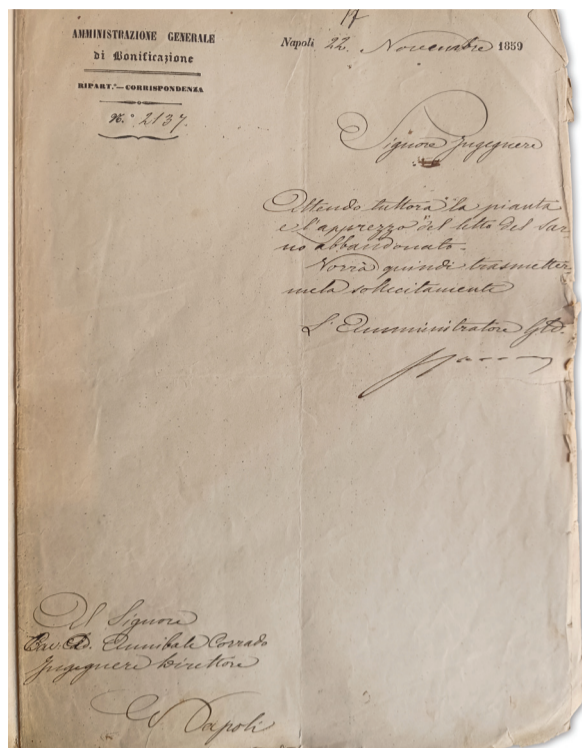 17
AMMINISTRAZIONE GENERALE
di Bonificazione
RIPART.° — CORRISPONDENZA
N.° 2137.
Napoli 22. Novembre 1859
Signore Ingegnere
Attendo tuttora la pianta
e l'apprezzo del letto del Sar
no abbandonato.
Vorrà quindi trasmetter
mela sollecitamente
L'Amministratore
Al Signore
Annibale Corrado
Ingegnere Direttore
Napoli